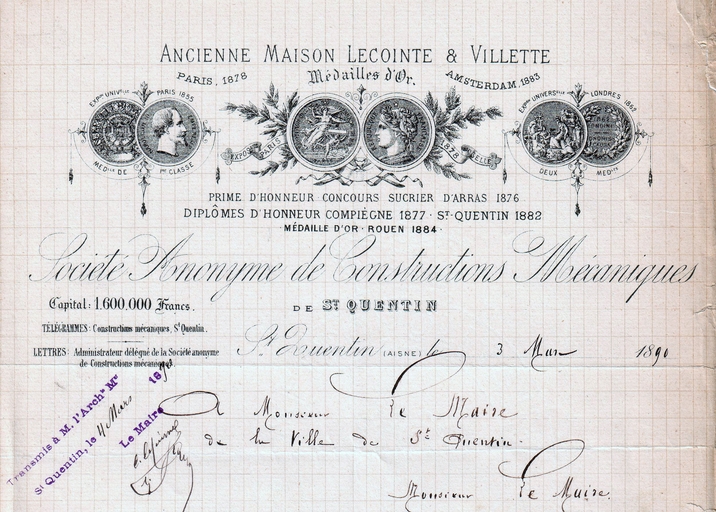 ANCIENNE MAISON LECOINTE & VILLETTE
PARIS, 1878 Médailles d'Or. AMSTERDAM, 1883
EXPon UNIVlle PARIS 1855
MEDlle DE 1re CLASSE
EXPOS PARIS 1878 ELLE
EXPon UNIVERSlle LONDRES 1862
DEUX MEDlles
PRIME D'HONNEUR CONCOURS SUCRIER D'ARRAS 1876
DIPLÔMES D'HONNEUR COMPIÈGNE 1877 · ST-QUENTIN 1882
·MÉDAILLE D'OR · ROUEN 1884·
Société Anonyme de Constructions Mécaniques
DE ST QUENTIN
Capital: 1.600,000 Francs.
TÉLÉGRAMMES: Constructions mécaniques, St Quentin.
LETTRES: Administrateur délégué de la Société anonyme
de Constructions mécaniques
St Quentin (AISNE) le 3 Mars 1890
Transmis à M. l'Archte Mal
St Quentin, le 4 Mars 1890
Le Maire
A Monsieur Le Maire
de la Ville de St Quentin.
Monsieur Le Maire.